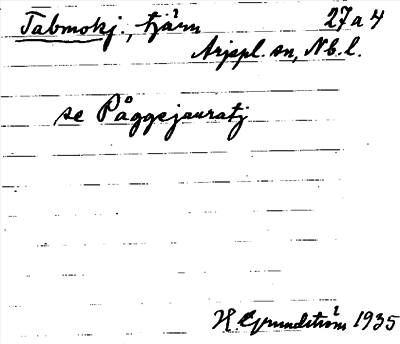 Tabmokj., tjärn 27a4
Arjepl. sn, Nb. l.
se Påggejauratj
H. Grundström 1935